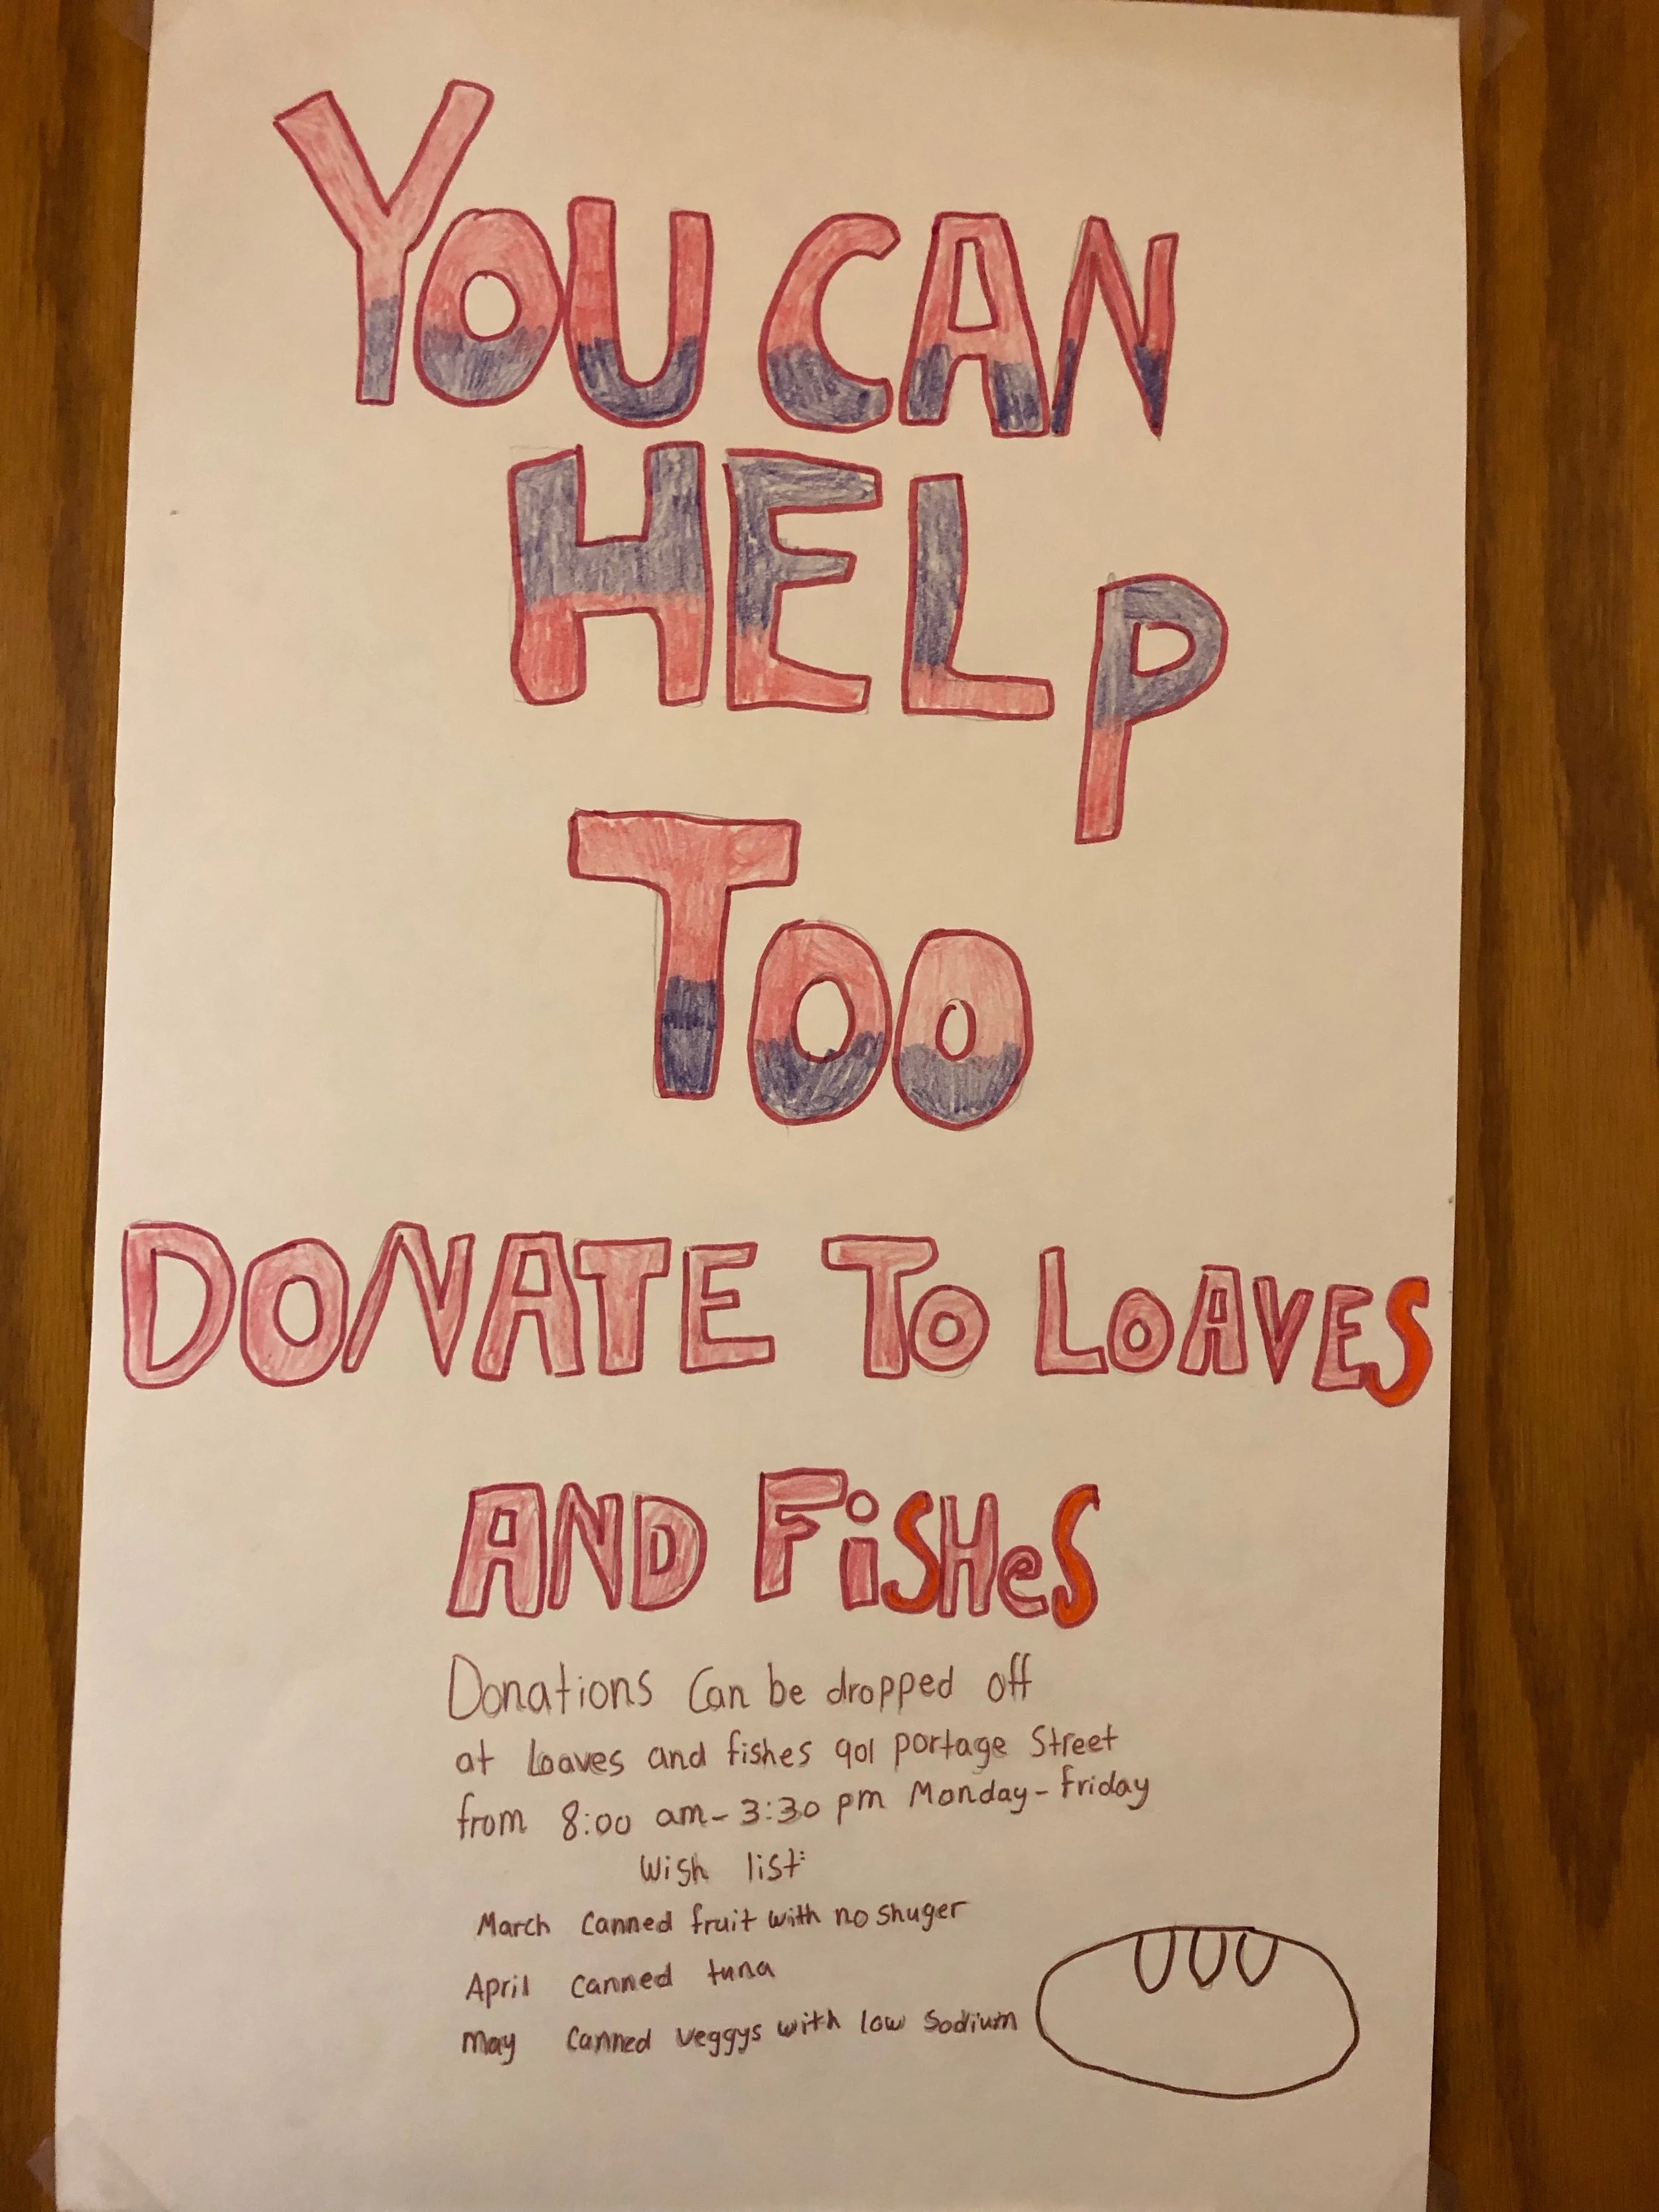 YOU CAN
HELP
TOO
DONATE TO LOAVES
AND FiSHeS
Donations can be dropped off
at Loaves and fishes 901 portage Street
from 8:00 am-3:30 pm Monday-Friday
Wish list:
March canned fruit with no shuger
April canned tuna
May canned veggys with low sodium